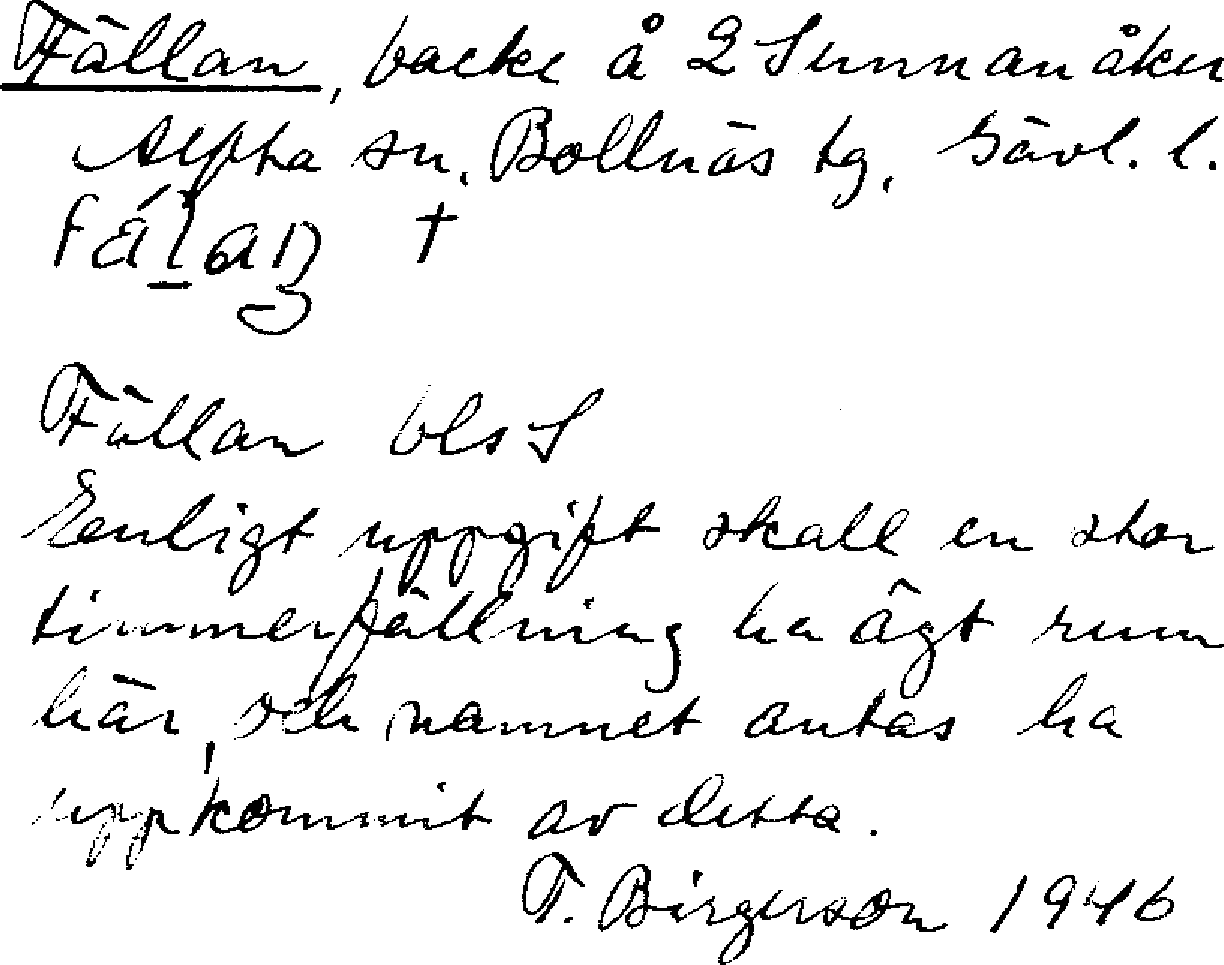 Fällan, backe å 2 Sunnanåker
Alfta sn, Bollnäs tg, Gävl. l.
Fällan bls S
Enligt uppgift skall en stor
timmerfällning ha ägt rum
här, och namnet antas ha
uppkommit av detta.
F. Birgerson 1946